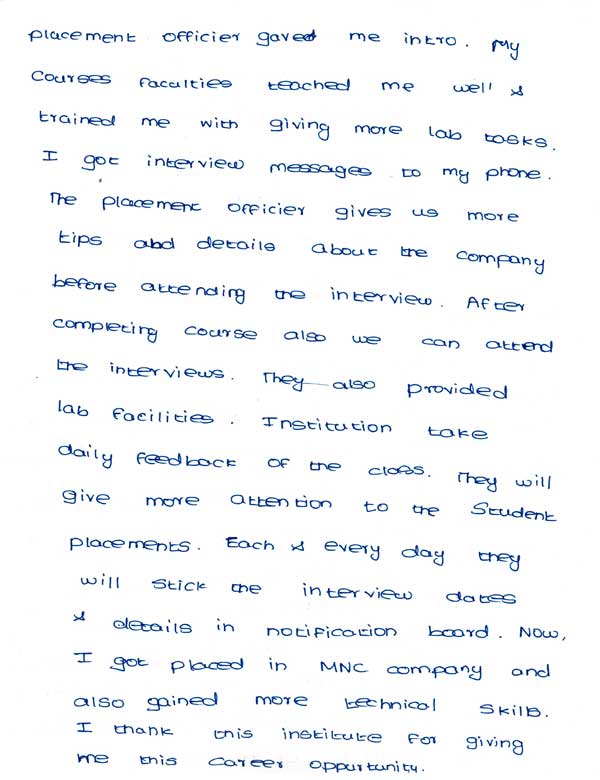 placement officier gaved me intro. My
Courses faculties teached me well &
trained me with giving more lab tasks.
I got interview messages to my phone.
The placement officier gives us more
tips abd details about the company
before attending the interview. After
completing course also we can attend
the interviews. They also provided
lab facilities. Institution take
daily feedback of the class. They will
give more attention to the Student
placements. Each & every day they
will stick the interview dates
& details in notification board. Now,
I got placed in MNC company and
also gained more technical skills.
I thank this institute for giving
me this career oppurtunity.